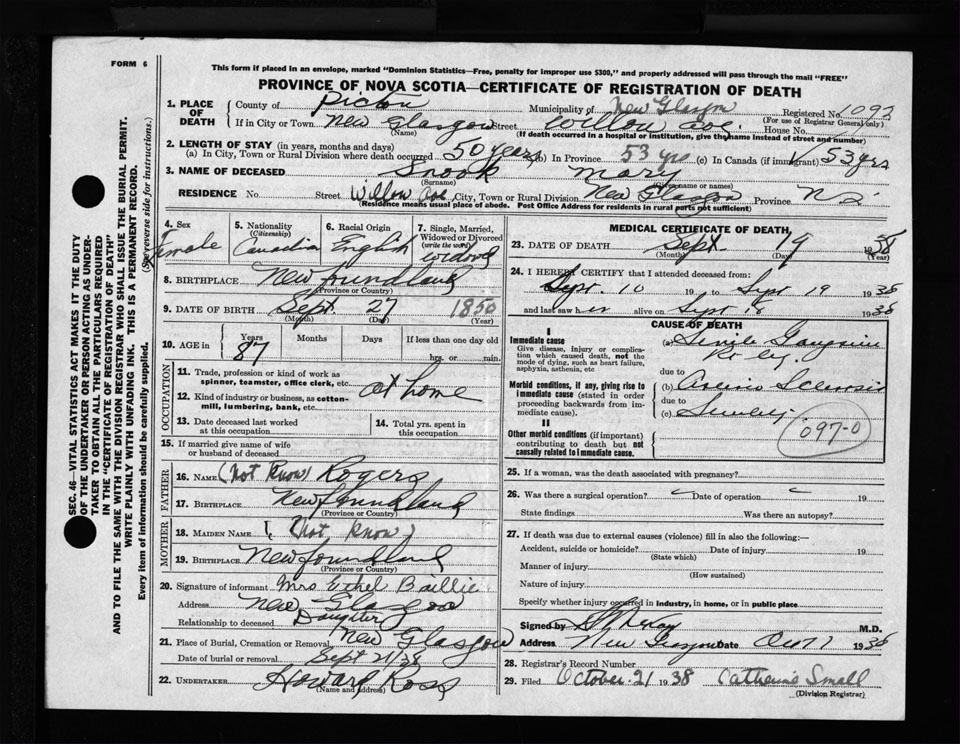 FORM 6
This form if placed in an envelope, marked "Dominion Statistics—Free, penalty for improper use $300," and properly addressed will pass through the mail "FREE"
PROVINCE OF NOVA SCOTIA—CERTIFICATE OF REGISTRATION OF DEATH
SEC. 46—VITAL STATISTICS ACT MAKES IT THE DUTY
OF THE UNDERTAKER OR PERSON ACTING AS UNDER-
TAKER TO OBTAIN ALL THE PARTICULARS REQUIRED
IN THE "CERTIFICATE OF REGISTRATION OF DEATH"
AND TO FILE THE SAME WITH THE DIVISION REGISTRAR WHO SHALL ISSUE THE BURIAL PERMIT.
WRITE PLAINLY WITH UNFADING INK. THIS IS A PERMANENT RECORD.
Every item of information should be carefully supplied. (See reverse side for instructions.)
1. PLACE OF DEATH County of Pictou Municipality of New Glasgow Registered No. 1092
(For use of Registrar General only)
If in City or Town New Glasgow Street Willow Ave House No.
(Name) (If death occurred in a hospital or institution, give the name instead of street and number)
2. LENGTH OF STAY (in years, months and days)
(a) In City, Town or Rural Division where death occurred 50 years (b) In Province 53 yrs (c) In Canada (if immigrant) 53 yrs
3. NAME OF DECEASED Snook Mary
(Surname) (Given name or names)
RESIDENCE No. Street Willow Ave City, Town or Rural Division New Glasgow Province N S
(Residence means usual place of abode. Post Office Address for residents in rural parts not sufficient)
4. Sex Female
5. Nationality (Citizenship) Canadian
6. Racial Origin English
7. Single, Married, Widowed or Divorced (write the word) Widowed
8. BIRTHPLACE Newfoundland
(Province or Country)
9. DATE OF BIRTH Sept. 27 1850
(Month) (Day) (Year)
10. AGE in Years 87 Months Days If less than one day old hrs. or min.
OCCUPATION
11. Trade, profession or kind of work as spinner, teamster, office clerk, etc.
at home
12. Kind of industry or business, as cotton-mill, lumbering, bank, etc.
13. Date deceased last worked at this occupation
14. Total yrs. spent in this occupation
15. If married give name of wife or husband of deceased
FATHER
16. NAME (Not Know) Rogers
17. BIRTHPLACE Newfoundland
(Province or Country)
MOTHER
18. MAIDEN NAME (Not Know)
19. BIRTHPLACE Newfoundland
(Province or Country)
20. Signature of informant Mrs Ethel Baillie
Address New Glasgow
Relationship to deceased Daughter
21. Place of Burial, Cremation or Removal New Glasgow
Date of burial or removal Sept 21/38
22. UNDERTAKER Howard Ross
(Name and address)
MEDICAL CERTIFICATE OF DEATH
23. DATE OF DEATH Sept 19 1938
(Month) (Day) (Year)
24. I HEREBY CERTIFY that I attended deceased from:
Sept. 10 19 to Sept 19 1938
and last saw her alive on Sept 18 1938
CAUSE OF DEATH
I
Immediate cause
Give disease, injury or complication which caused death, not the mode of dying, such as heart failure, asphyxia, asthenia, etc
(a) Senile Gangrene
Rt leg.
due to
Morbid conditions, if any, giving rise to immediate cause (stated in order proceeding backwards from immediate cause).
(b) Arterio Sclerosis
due to
(c) Senility.
097-0
II
Other morbid conditions (if important) contributing to death but not causally related to immediate cause.
25. If a woman, was the death associated with pregnancy?
26. Was there a surgical operation? Date of operation 19
State findings Was there an autopsy?
27. If death was due to external causes (violence) fill in also the following:—
Accident, suicide or homicide? Date of injury 19
(State which)
Manner of injury
(How sustained)
Nature of injury
Specify whether injury occurred in industry, in home, or in public place
Signed by M.D.
Address New Glasgow Date Oct 1938
28. Registrar's Record Number
29. Filed October 21 1938 Catherine Small
(Division Registrar)